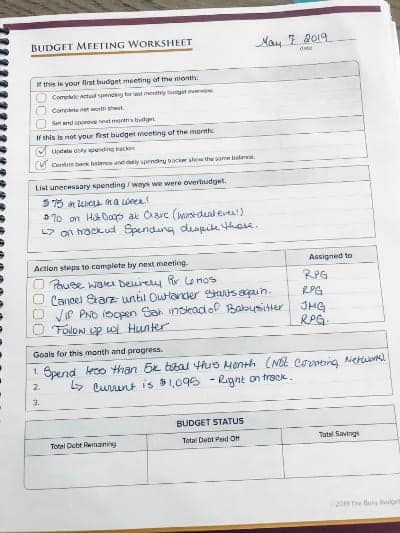 BUDGET MEETING WORKSHEET
May 7 2019
DATE
If this is your first budget meeting of the month:
Complete actual spending for last monthly budget overview.
Complete net worth sheet.
Set and approve next month's budget.
If this is not your first budget meeting of the month:
Update daily spending tracker.
Confirm bank balance and daily spending tracker show the same balance.
List unecessary spending / ways we were overbudget.
$75 in in a week!
$70 on Hot Dogs at (worst deal ever!)
↳ on track w/ Spending despite these.
Action steps to complete by next meeting.
Assigned to
Pause Water Delivery for 6 mos
RPG
Cancel Starz until Outlander starts again.
RPG
VIP PNO is open Sat. instead of Babysitter
JMG
Follow up w/ Hunter
RPG.
Goals for this month and progress.
1. Spend less than 5k total this Month (Not Counting Network)
2. ↳ Current is $1,095 - Right on track.
3.
BUDGET STATUS
Total Debt Remaining
Total Debt Paid Off
Total Savings
©2019 The Busy Budget